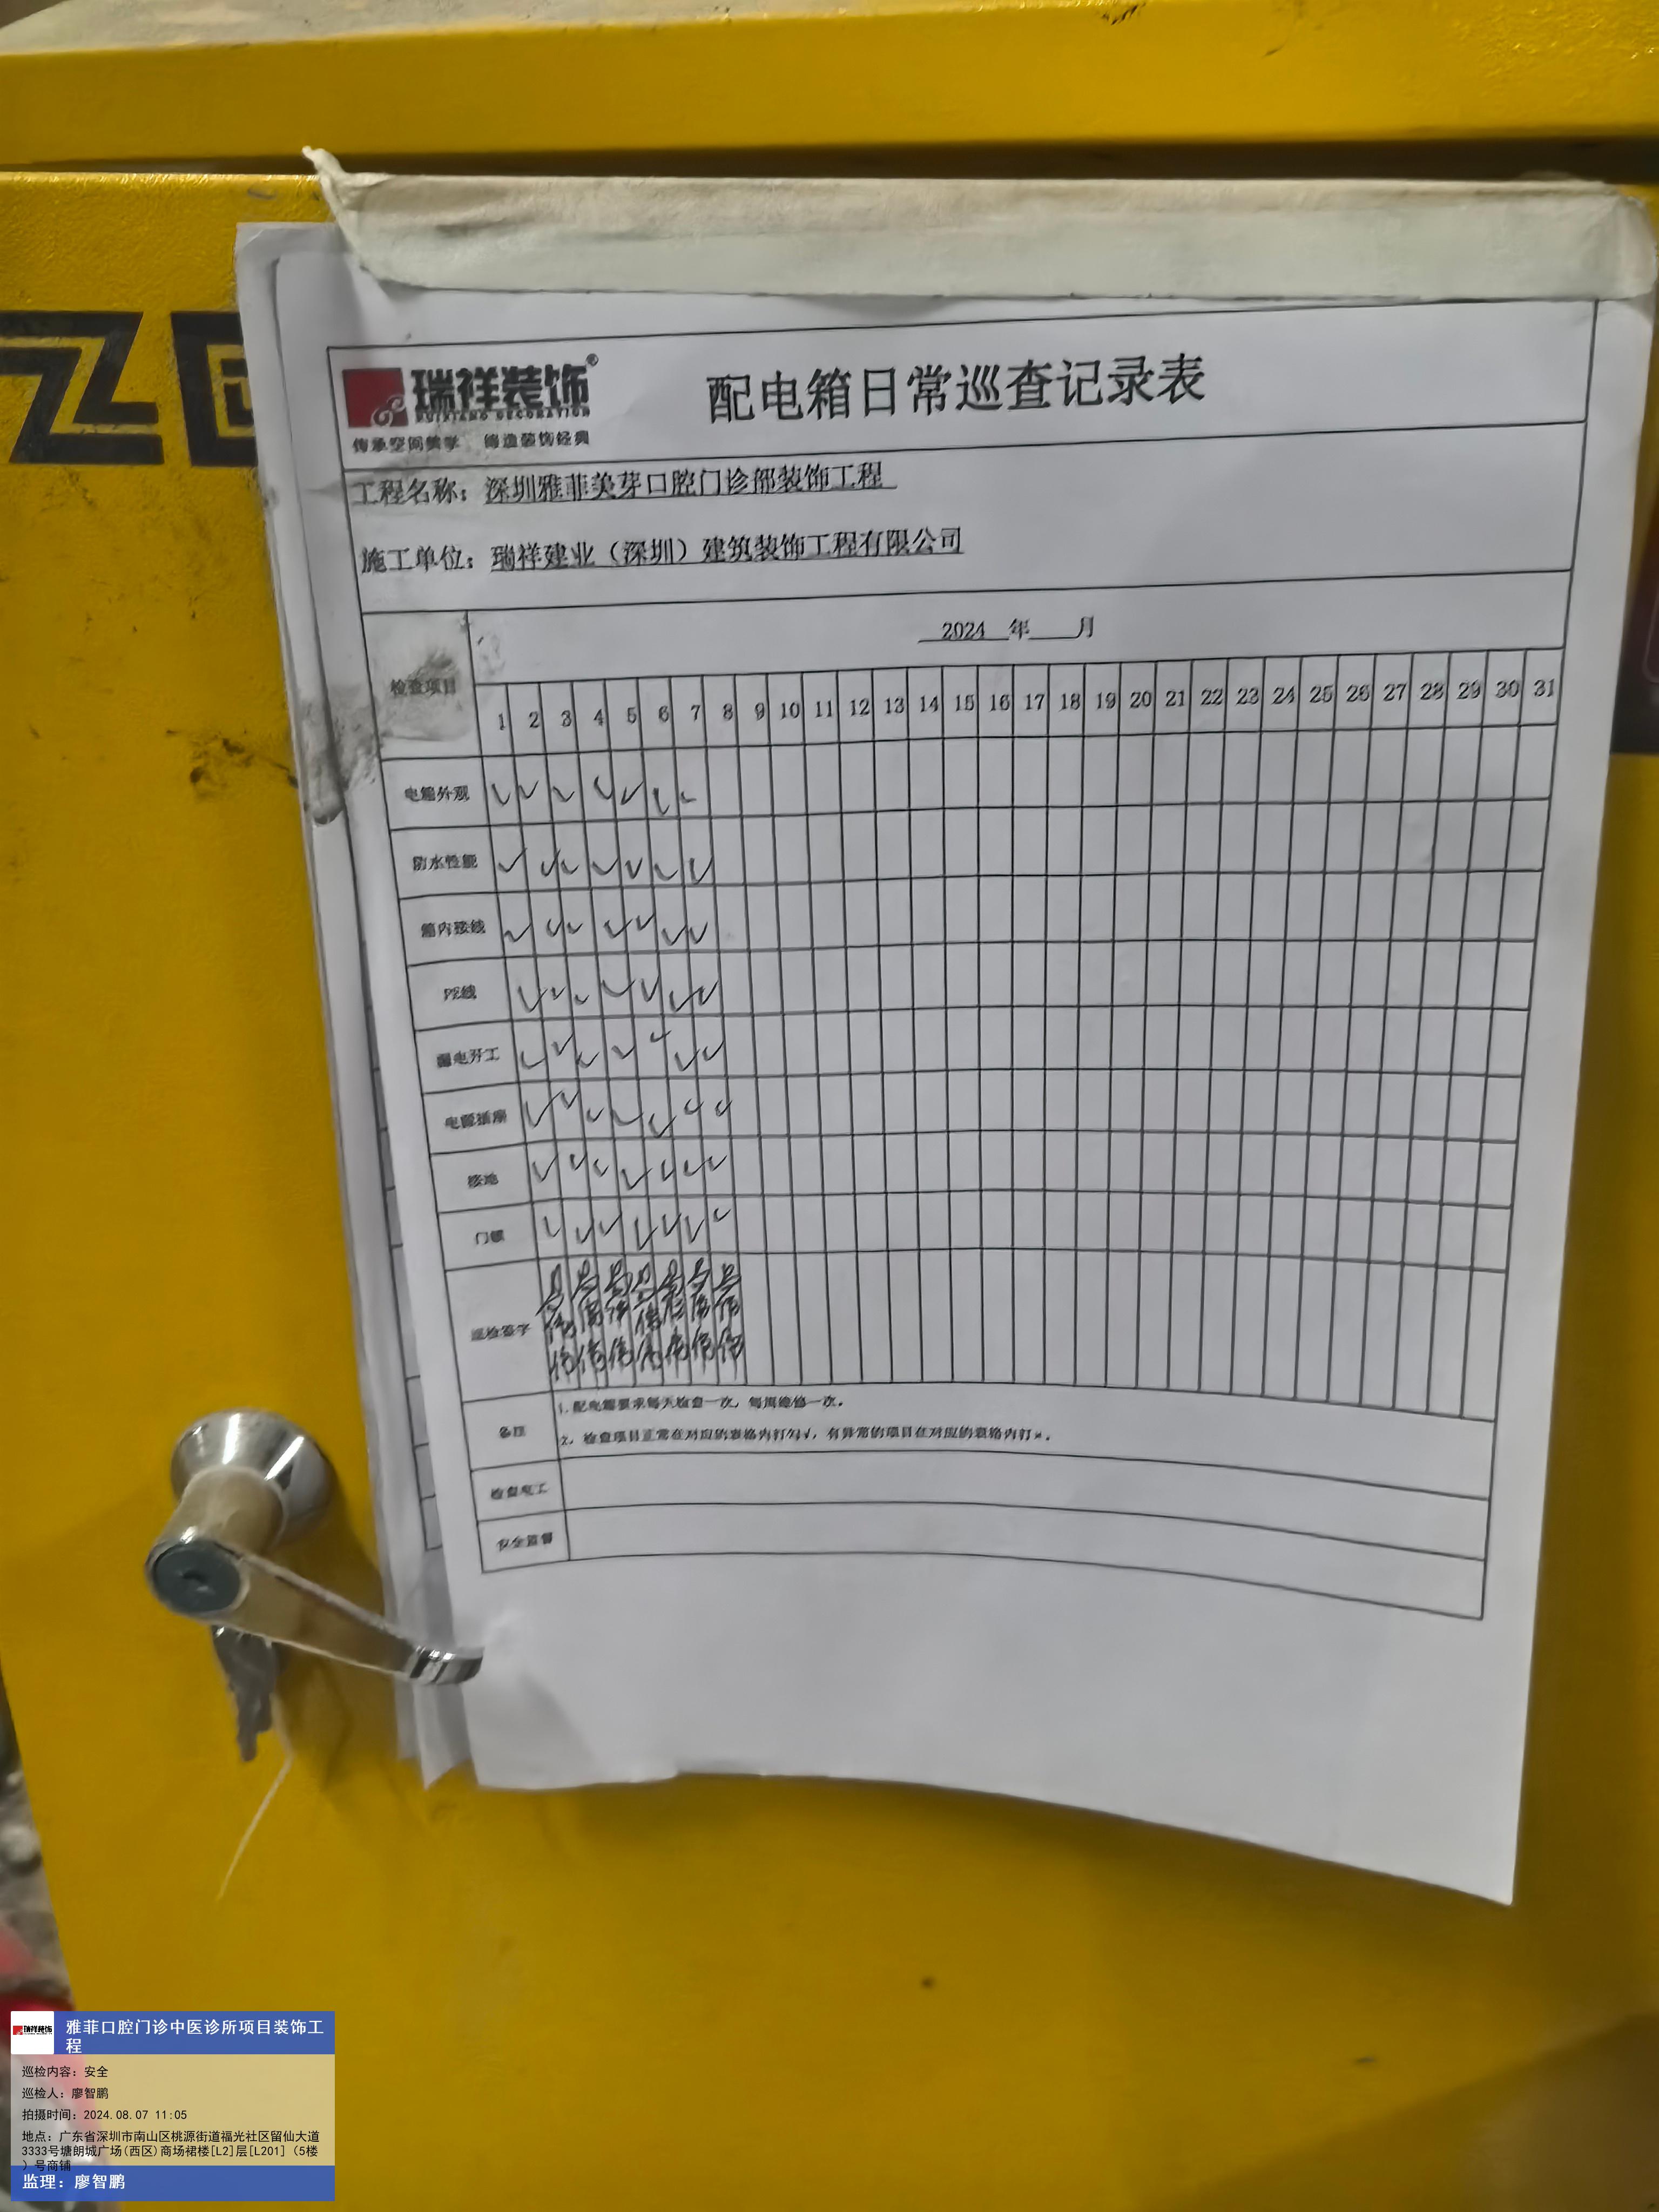 瑞祥装饰®
RUIXIANG DECORATION
传承空间美学 缔造装饰经典
配电箱日常巡查记录表
工程名称：深圳雅菲美芽口腔门诊部装饰工程
施工单位：瑞祥建业（深圳）建筑装饰工程有限公司
检查项目
2024 年 月
1 2 3 4 5 6 7 8 9 10 11 12 13 14 15 16 17 18 19 20 21 22 23 24 25 26 27 28 29 30 31
电箱外观 ✓ ✓ ✓ ✓ ✓ ✓ ✓
防水性能 ✓ ✓ ✓ ✓ ✓ ✓ ✓
箱内接线 ✓ ✓ ✓ ✓ ✓ ✓ ✓
PE线 ✓ ✓ ✓ ✓ ✓ ✓ ✓
漏电开工 ✓ ✓ ✓ ✓ ✓ ✓ ✓
电源插座 ✓ ✓ ✓ ✓ ✓ ✓ ✓
接地 ✓ ✓ ✓ ✓ ✓ ✓ ✓
门锁 ✓ ✓ ✓ ✓ ✓ ✓ ✓
巡检签字
备注
1.配电箱要求每天检查一次，每周维修一次。
2、检查项目正常在对应的表格内打勾√，有异常的项目在对应的表格内打×。
检查电工
安全监督
瑞祥装饰
雅菲口腔门诊中医诊所项目装饰工
程
巡检内容：安全
巡检人：廖智鹏
拍摄时间：2024.08.07 11:05
地点：广东省深圳市南山区桃源街道福光社区留仙大道
3333号塘朗城广场(西区)商场裙楼[L2]层[L201]（5楼
）号商铺
监理：廖智鹏